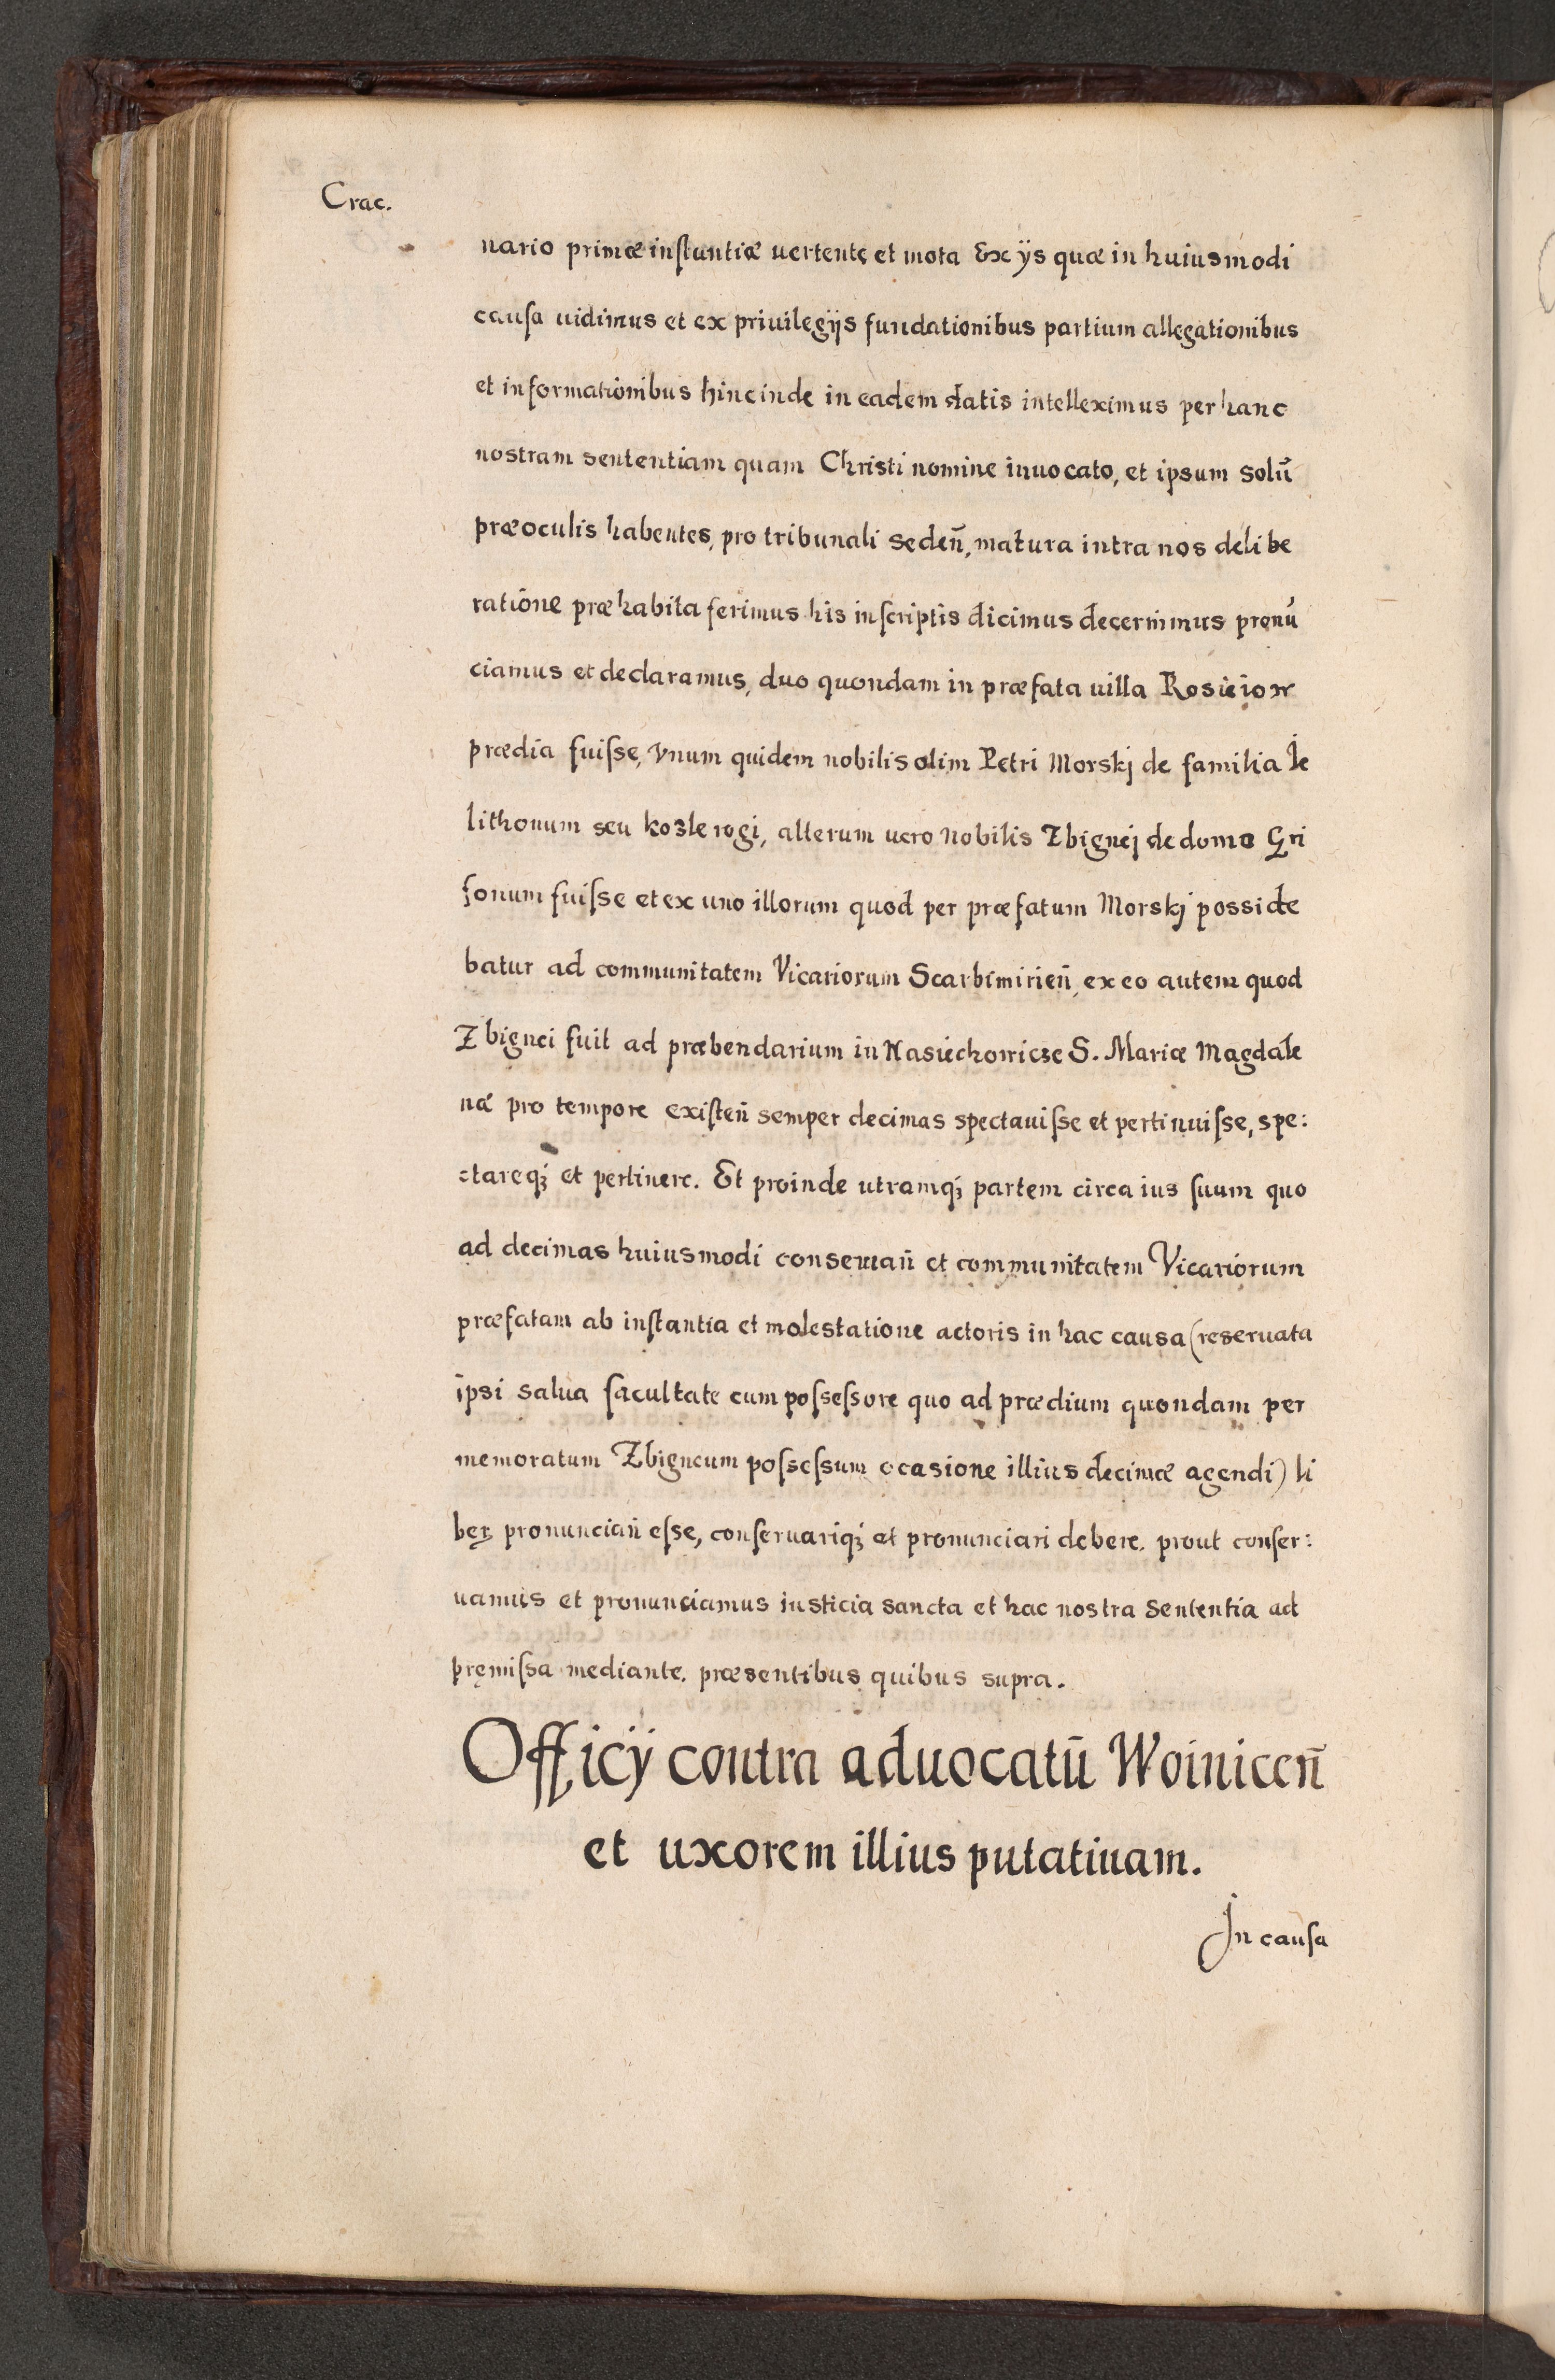 Crac.
nario primæ instantiæ uertente et mota Ex ijs quæ in huiusmodi
causa uidimus et ex priuilegijs fundationibus partium allegationibus
et informationibus hincinde in eadem datis intelleximus per hanc
nostram sententiam quam Christi nomine inuocato, et ipsum solū
præ oculis habentes, pro tribunali sedeñ, matura intra nos delibe
ratione præhabita ferimus his inscriptis dicimus decernimus pronū
ciamus et declaramus, duo quondam in præfata uilla Rosieiow
prædia fuiſse, vnum quidem nobilis olim Petri Morskj de familia Je
lithonum seu kozle rogi, alterum uero nobilis Zbignej de domo Gri
fonum fuiſse et ex uno illorum quod per præfatum Morskj posside
batur ad communitatem Vicariorum Scarbimirieñ, ex eo autem quod
Zbignei fuit ad præbendarium in Nasiechowicze S. Mariæ Magdale
næ pro tempore existeñ semper decimas spectauiſse et pertinuiſse, spe:
:ctareq; et pertinere. Et proinde utramq; partem circa ius suum quo
ad decimas huiusmodi conseruañ et communitatem Vicariorum
præfatam ab instantia et molestatione actoris in hac causa (reseruata
ipsi salua facultate cum poſseſsore quo ad prædium quondam per
memoratum Zbigneum poſseſsum ocasione illius decimæ agendi) li
ber pronunciañ eſse, conseruariq; et pronunciari debere. prout conser:
uamus et pronunciamus iusticia sancta et hac nostra sententia ad
pręmiſsa mediante. præsentibus quibus supra.
Officij contra aduocatū Woiniceñ
et uxorem illius putatiuam.
In causa